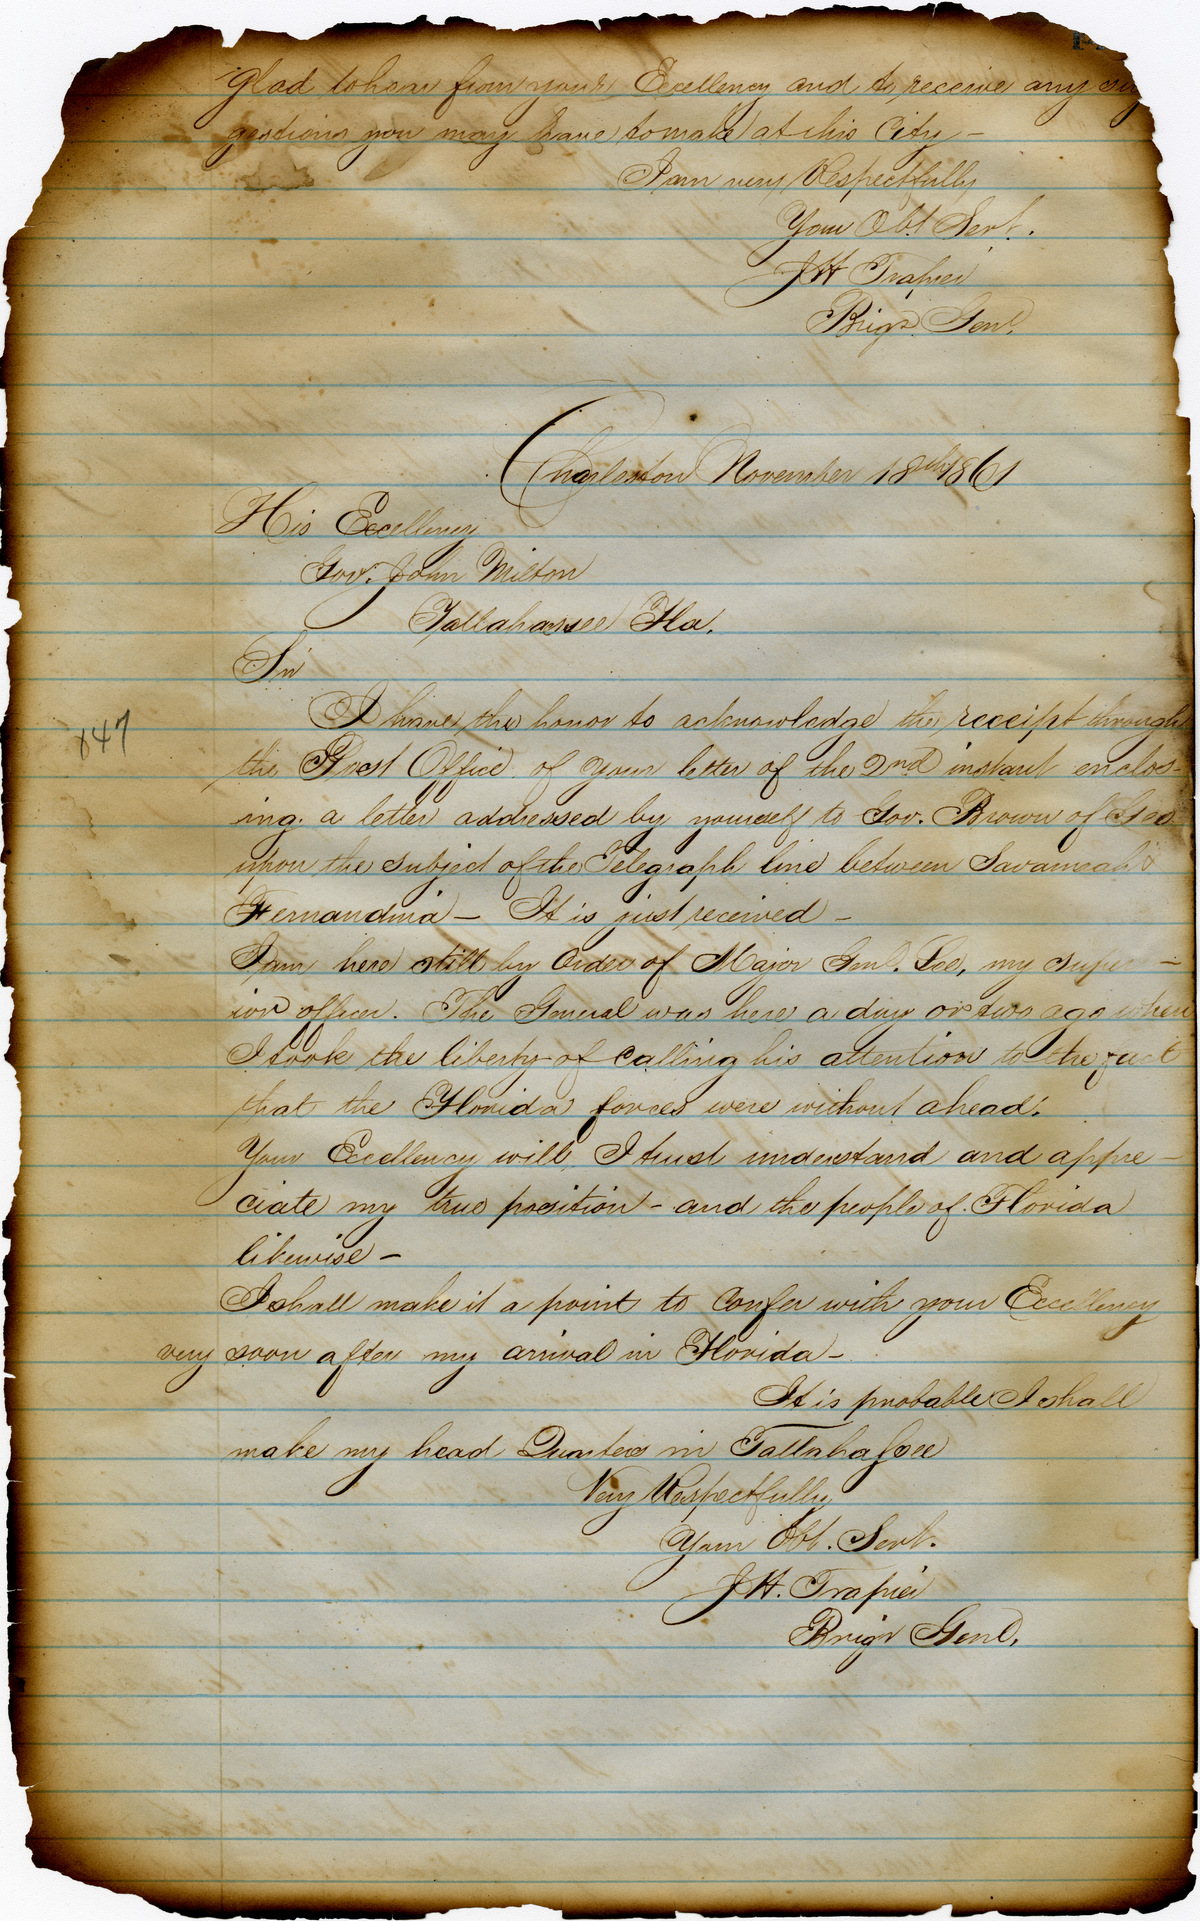 glad to hear from your Excellency and to receive any sug
gestions you may have to make at this City —
I am very Respectfully
Your Obt Servt.
J H Trapier
Brigr Genl.
Charleston November 18th 1861
His Excellency
Gov. John Milton
Tallahassee Fla.
Sir
I have the honor to acknowledge the receipt through
the Post Office of your letter of the 2nd instant enclos-
ing a letter addressed by yourself to Gov. Brown of Geo
upon the subject of the Telegraph line between Savannah &
Fernandina — It is just received —
847
I am here still by Order of Major Genl. Lee, my super-
ior officer. The General was here a day or two ago when
I took the liberty of calling his attention to the fact
that the Florida forces were without a head.
Your Excellency will, I trust understand and appre-
ciate my true position - and the people of Florida
likewise —
I shall make it a point to confer with your Excellency
very soon after my arrival in Florida —
It is probable I shall
make my head Quarters in Tallahassee
Very Respectfully
Your Obt. Servt.
J H. Trapier
Brigr Genl.